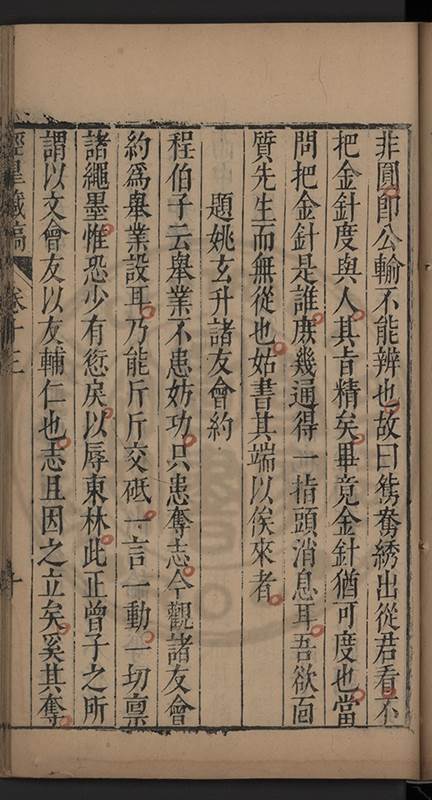 非圓卽公輸不能辨也故曰鴛鴦綉出從君看不
把金針度與人其旨精矣畢竟金針猶可度也當
問把金針是誰庶幾通得一指頭消息耳吾欲面
質先生而無從也姑書其端以俟來者
題姚玄升諸友會約
程伯子云舉業不患妨功只患奪志今觀諸友會
約爲舉業設耳乃能斤斤交砥一言一動一切稟
諸繩墨惟恐少有愆戾以辱東林此正曾子之所
謂以文會友以友輔仁也志且因之立矣奚其奪
涇臯藏稿 卷十三 十